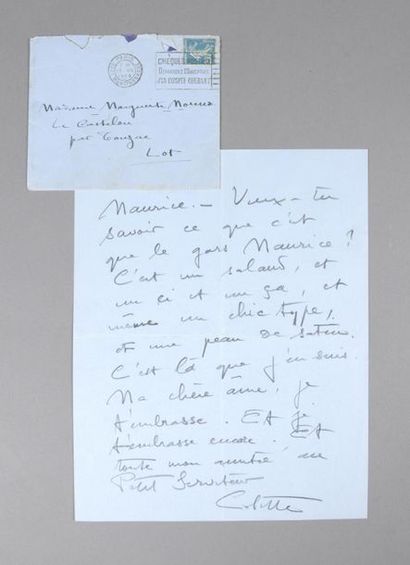 CHÈQUES POSTAUX
DEMANDEZ L'OUVERTURE
D'UN COMPTE COURANT
PARIS
Madame Marguerite Moreno
Le Castelou
par Touzac
Lot
Maurice. — Veux-tu
savoir ce que c'est
que le gars Maurice ?
C'est un salaud, et
un ci et un ça, et
même un chic type,
et une peau de satin.
C'est là que j'en suis.
Ma chère âme, je
t'embrasse. Et je
t'embrasse encore. Et
toute mon amitié au
Petit Serviteur
Colette